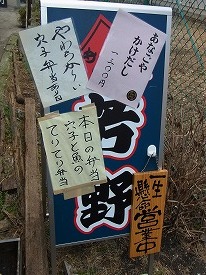 あなごや
かけだし
一二〇〇円
やわらか〜い
穴子弁当あり〼
本日の弁当
穴子と魚の
てりてり弁当
野
一生
懸命
営業中